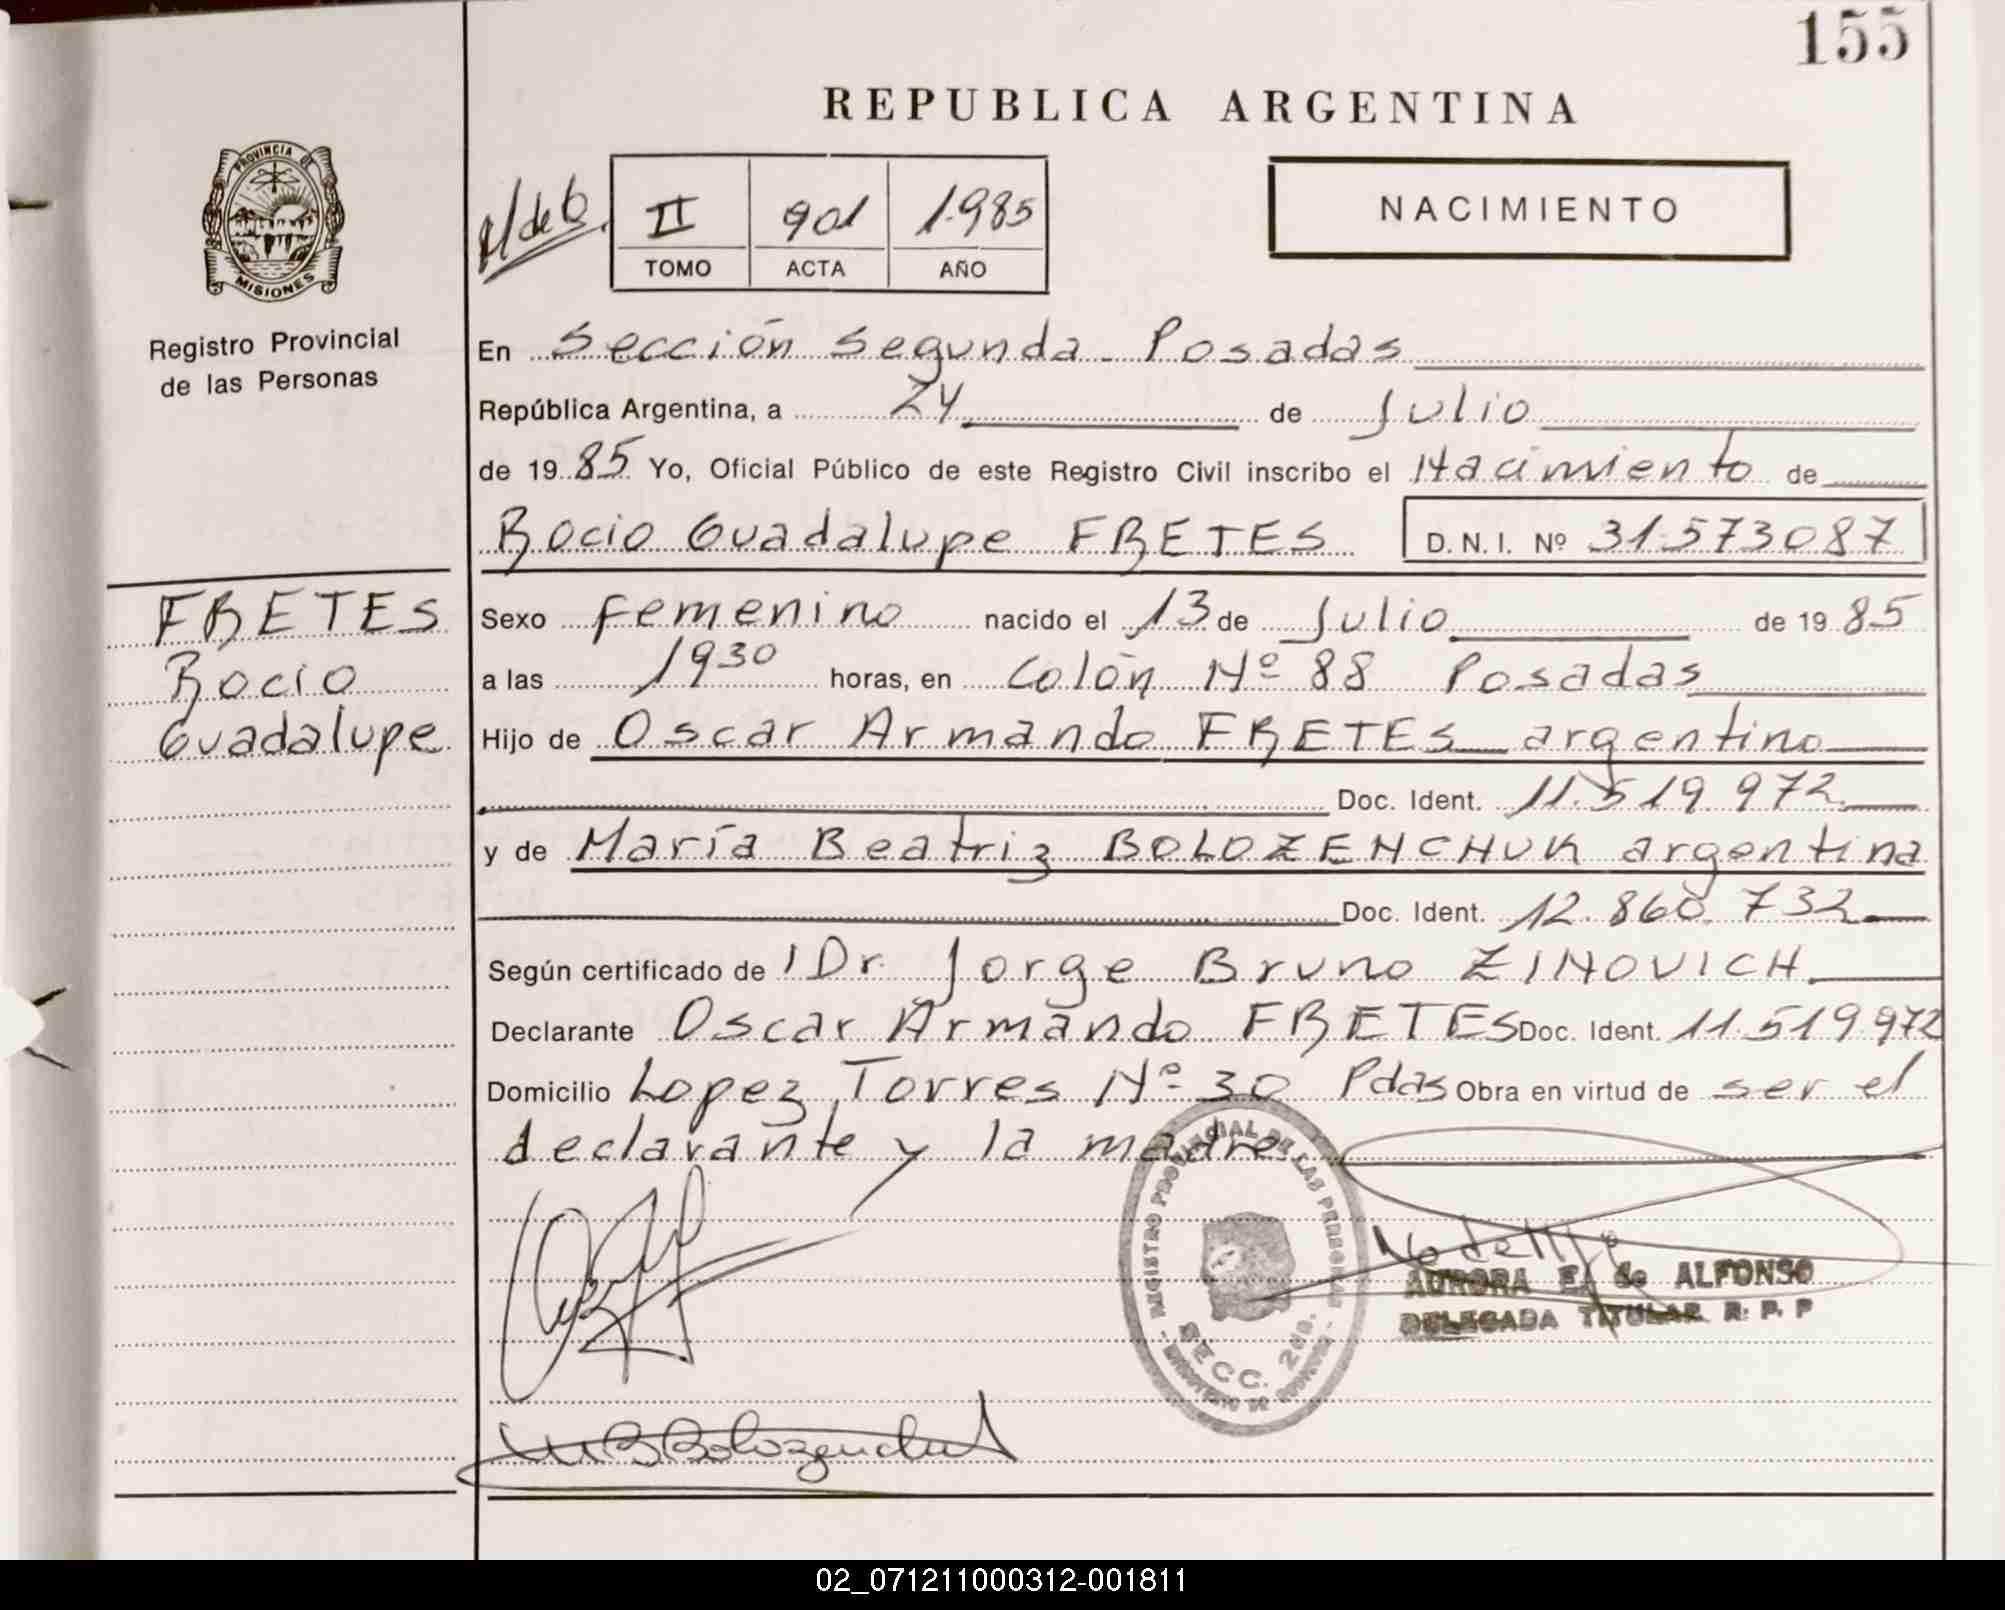 155
REPUBLICA ARGENTINA
PROVINCIA DE
MISIONES
Registro Provincial
de las Personas
II 901 1.985
TOMO ACTA AÑO
NACIMIENTO
En Sección Segunda - Posadas
República Argentina, a 24 de Julio
de 1985 Yo, Oficial Público de este Registro Civil inscribo el Nacimiento de
Rocio Guadalupe FRETES D.N.I. Nº 31.573087
FRETES
Rocio
Guadalupe
Sexo Femenino nacido el 13 de Julio de 1985
a las 1930 horas, en Colón Nº 88 Posadas
Hijo de Oscar Armando FRETES argentino
Doc. Ident. 11.519.972
y de María Beatriz BOLOZENCHUK argentina
Doc. Ident. 12.860.732
Según certificado de Dr. Jorge Bruno ZINOVICH
Declarante Oscar Armando FRETES Doc. Ident. 11.519.972
Domicilio Lopez Torres Nº 30 Pdas Obra en virtud de ser el
declarante y la madre
REGISTRO PROVINCIAL DE LAS PERSONAS
SECC. 2da.
AURORA E. de ALFONSO
DELEGADA TITULAR R. P. P
M B Bolozenchuk
02_071211000312-001811